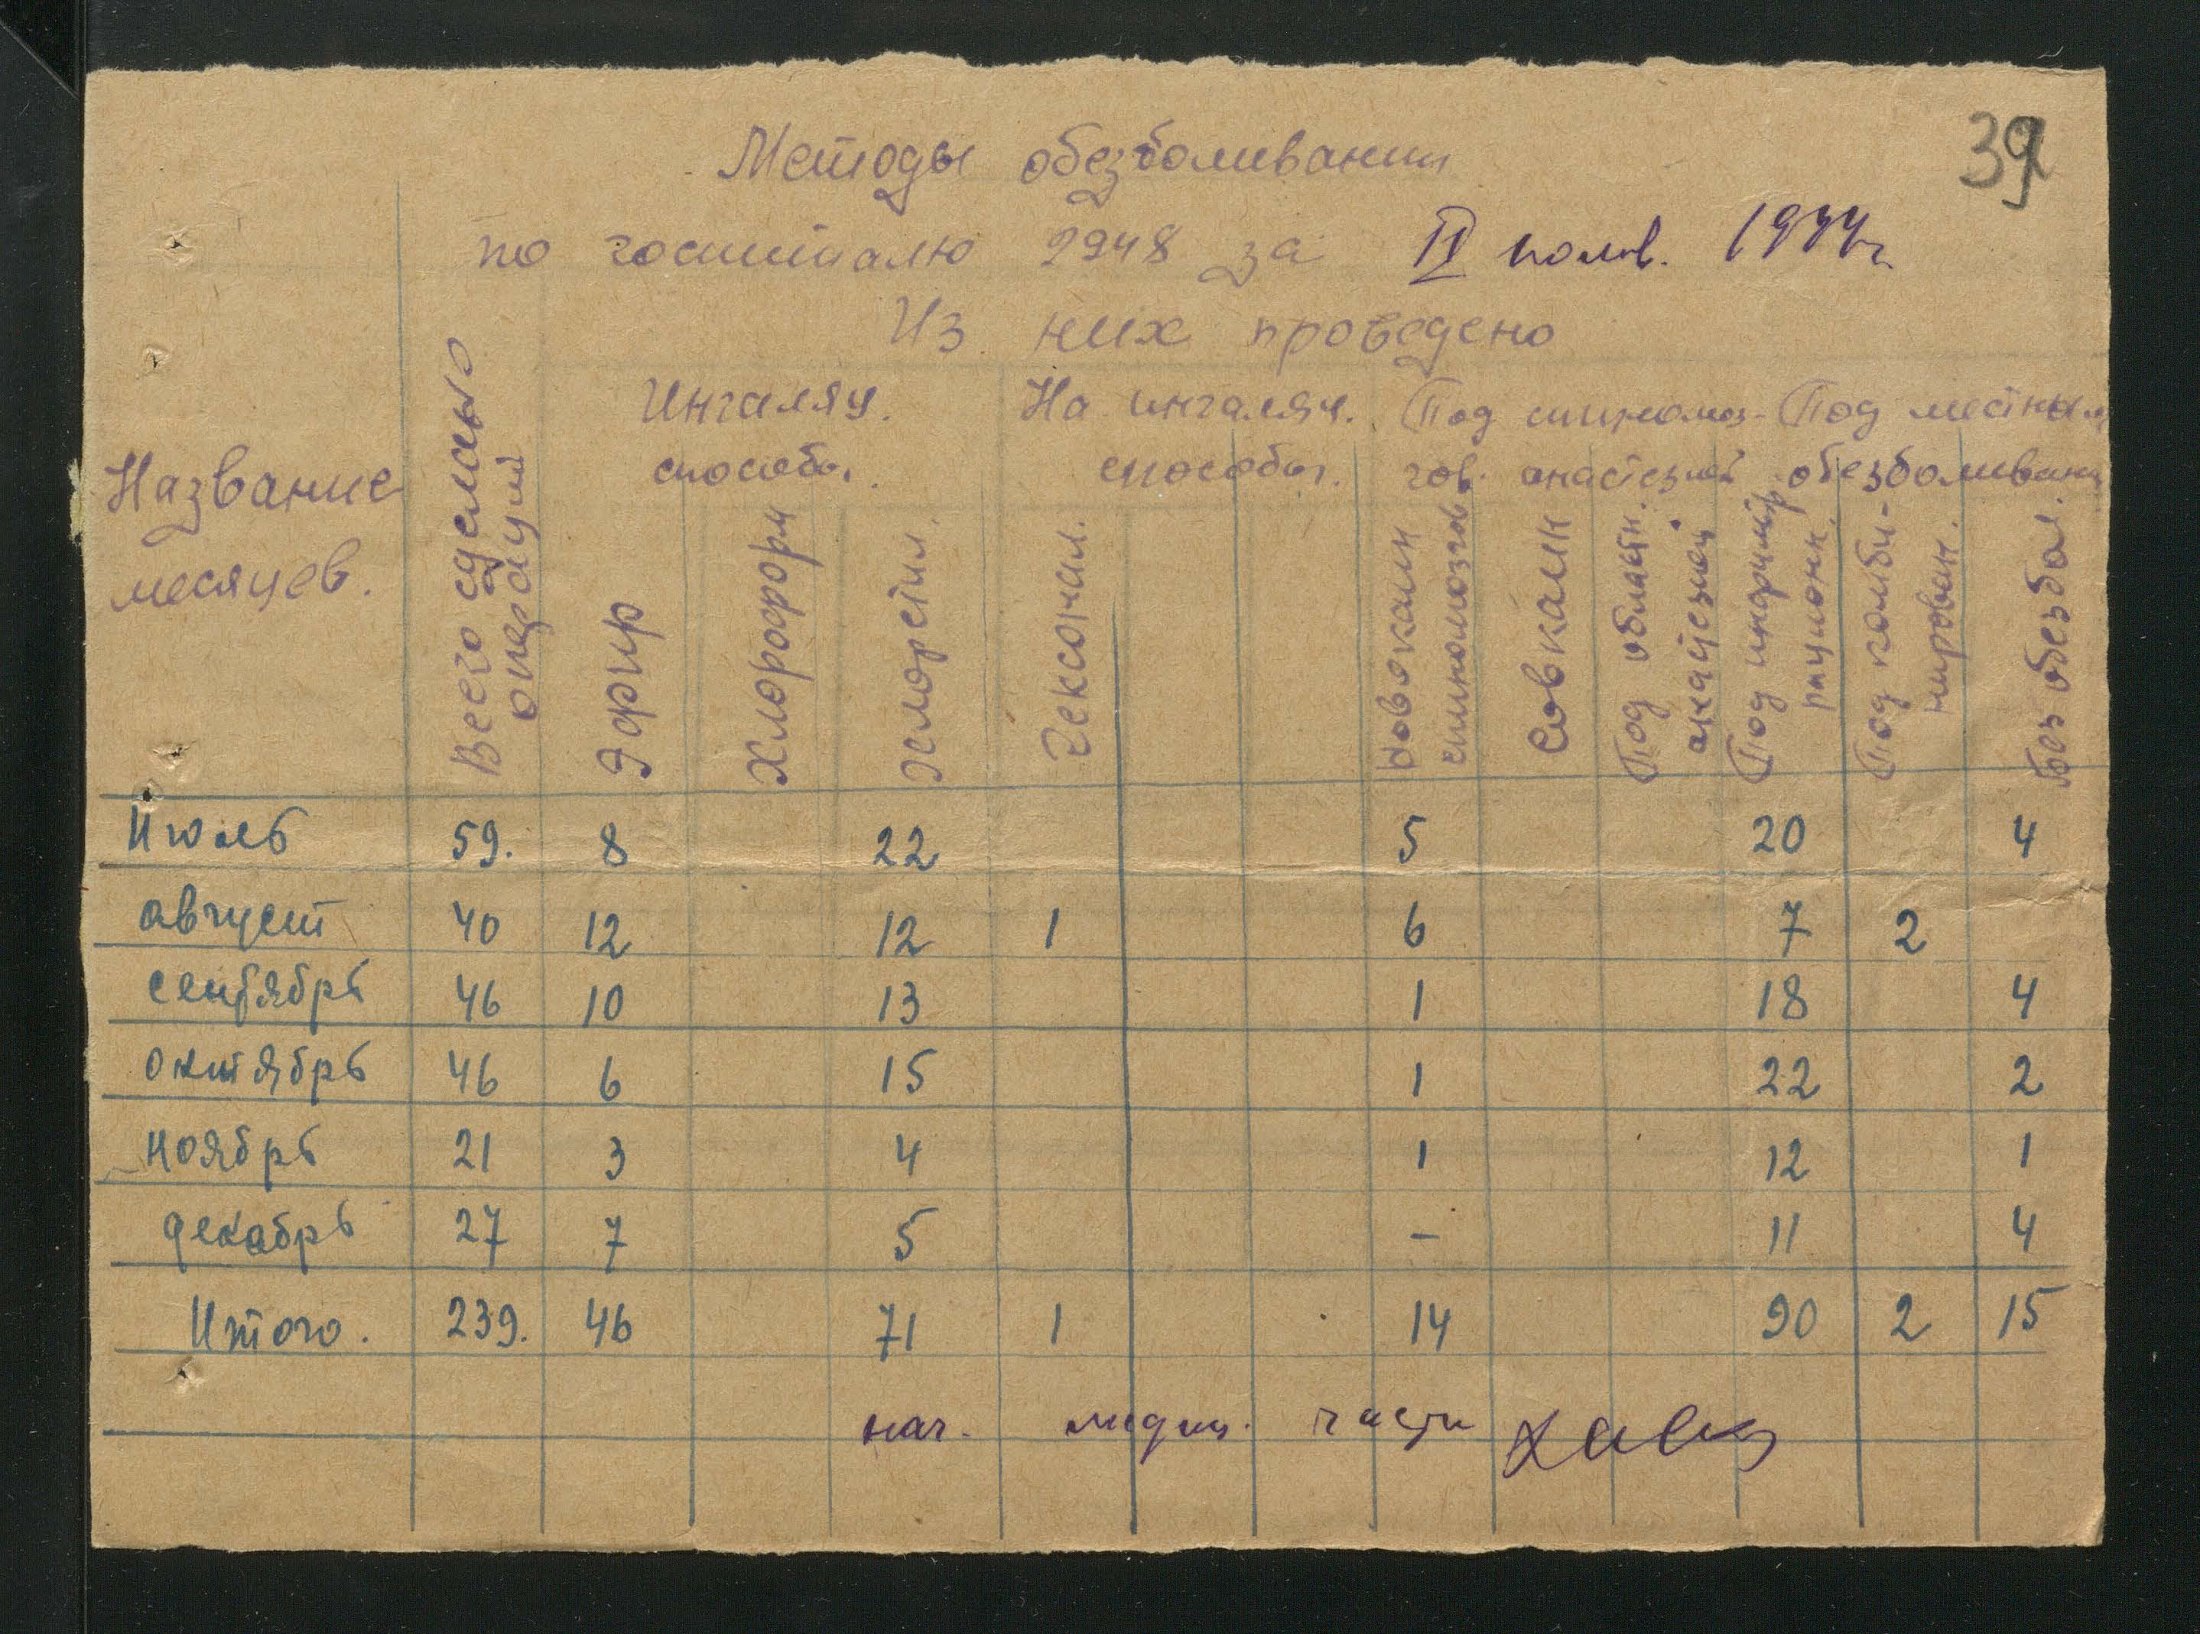 39
Методы обезболивания
по госпиталю 2948 за II полов. 1944 г.
Из них проведено
Название месяцев.
Всего сделано операций
Ингаляц. способы.
На ингаляц. способы.
Под спинномоз-гов. анастезией
Под местным обезболиван
Эфир
Хлороформ
Хлорэтил
Гексонал.
Новокаин спинномозгов
Совкаин
Под областн. анастезией
Под инфильтрационн.
Под комби-нирован.
Без обезбол.
Июль 59. 8 22 5 20 4
август 40 12 12 1 6 7 2
сентябрь 46 10 13 1 18 4
октябрь 46 6 15 1 22 2
ноябрь 21 3 4 1 12 1
декабрь 27 7 5 - 11 4
Итого. 239. 46 71 1 14 90 2 15
нач. медиц. части